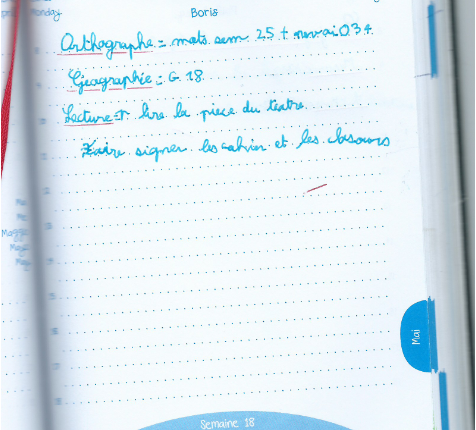 Monday
Boris
Orthographe = mots sem 25 + 034
Géographie : G 18
Lecture = lire la pièce du teatre
Faire signer les cahier et les
Mai
Semaine 18